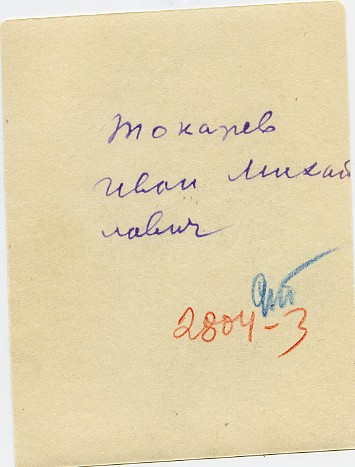 Токарев
Иван Михай
лович
2804-3